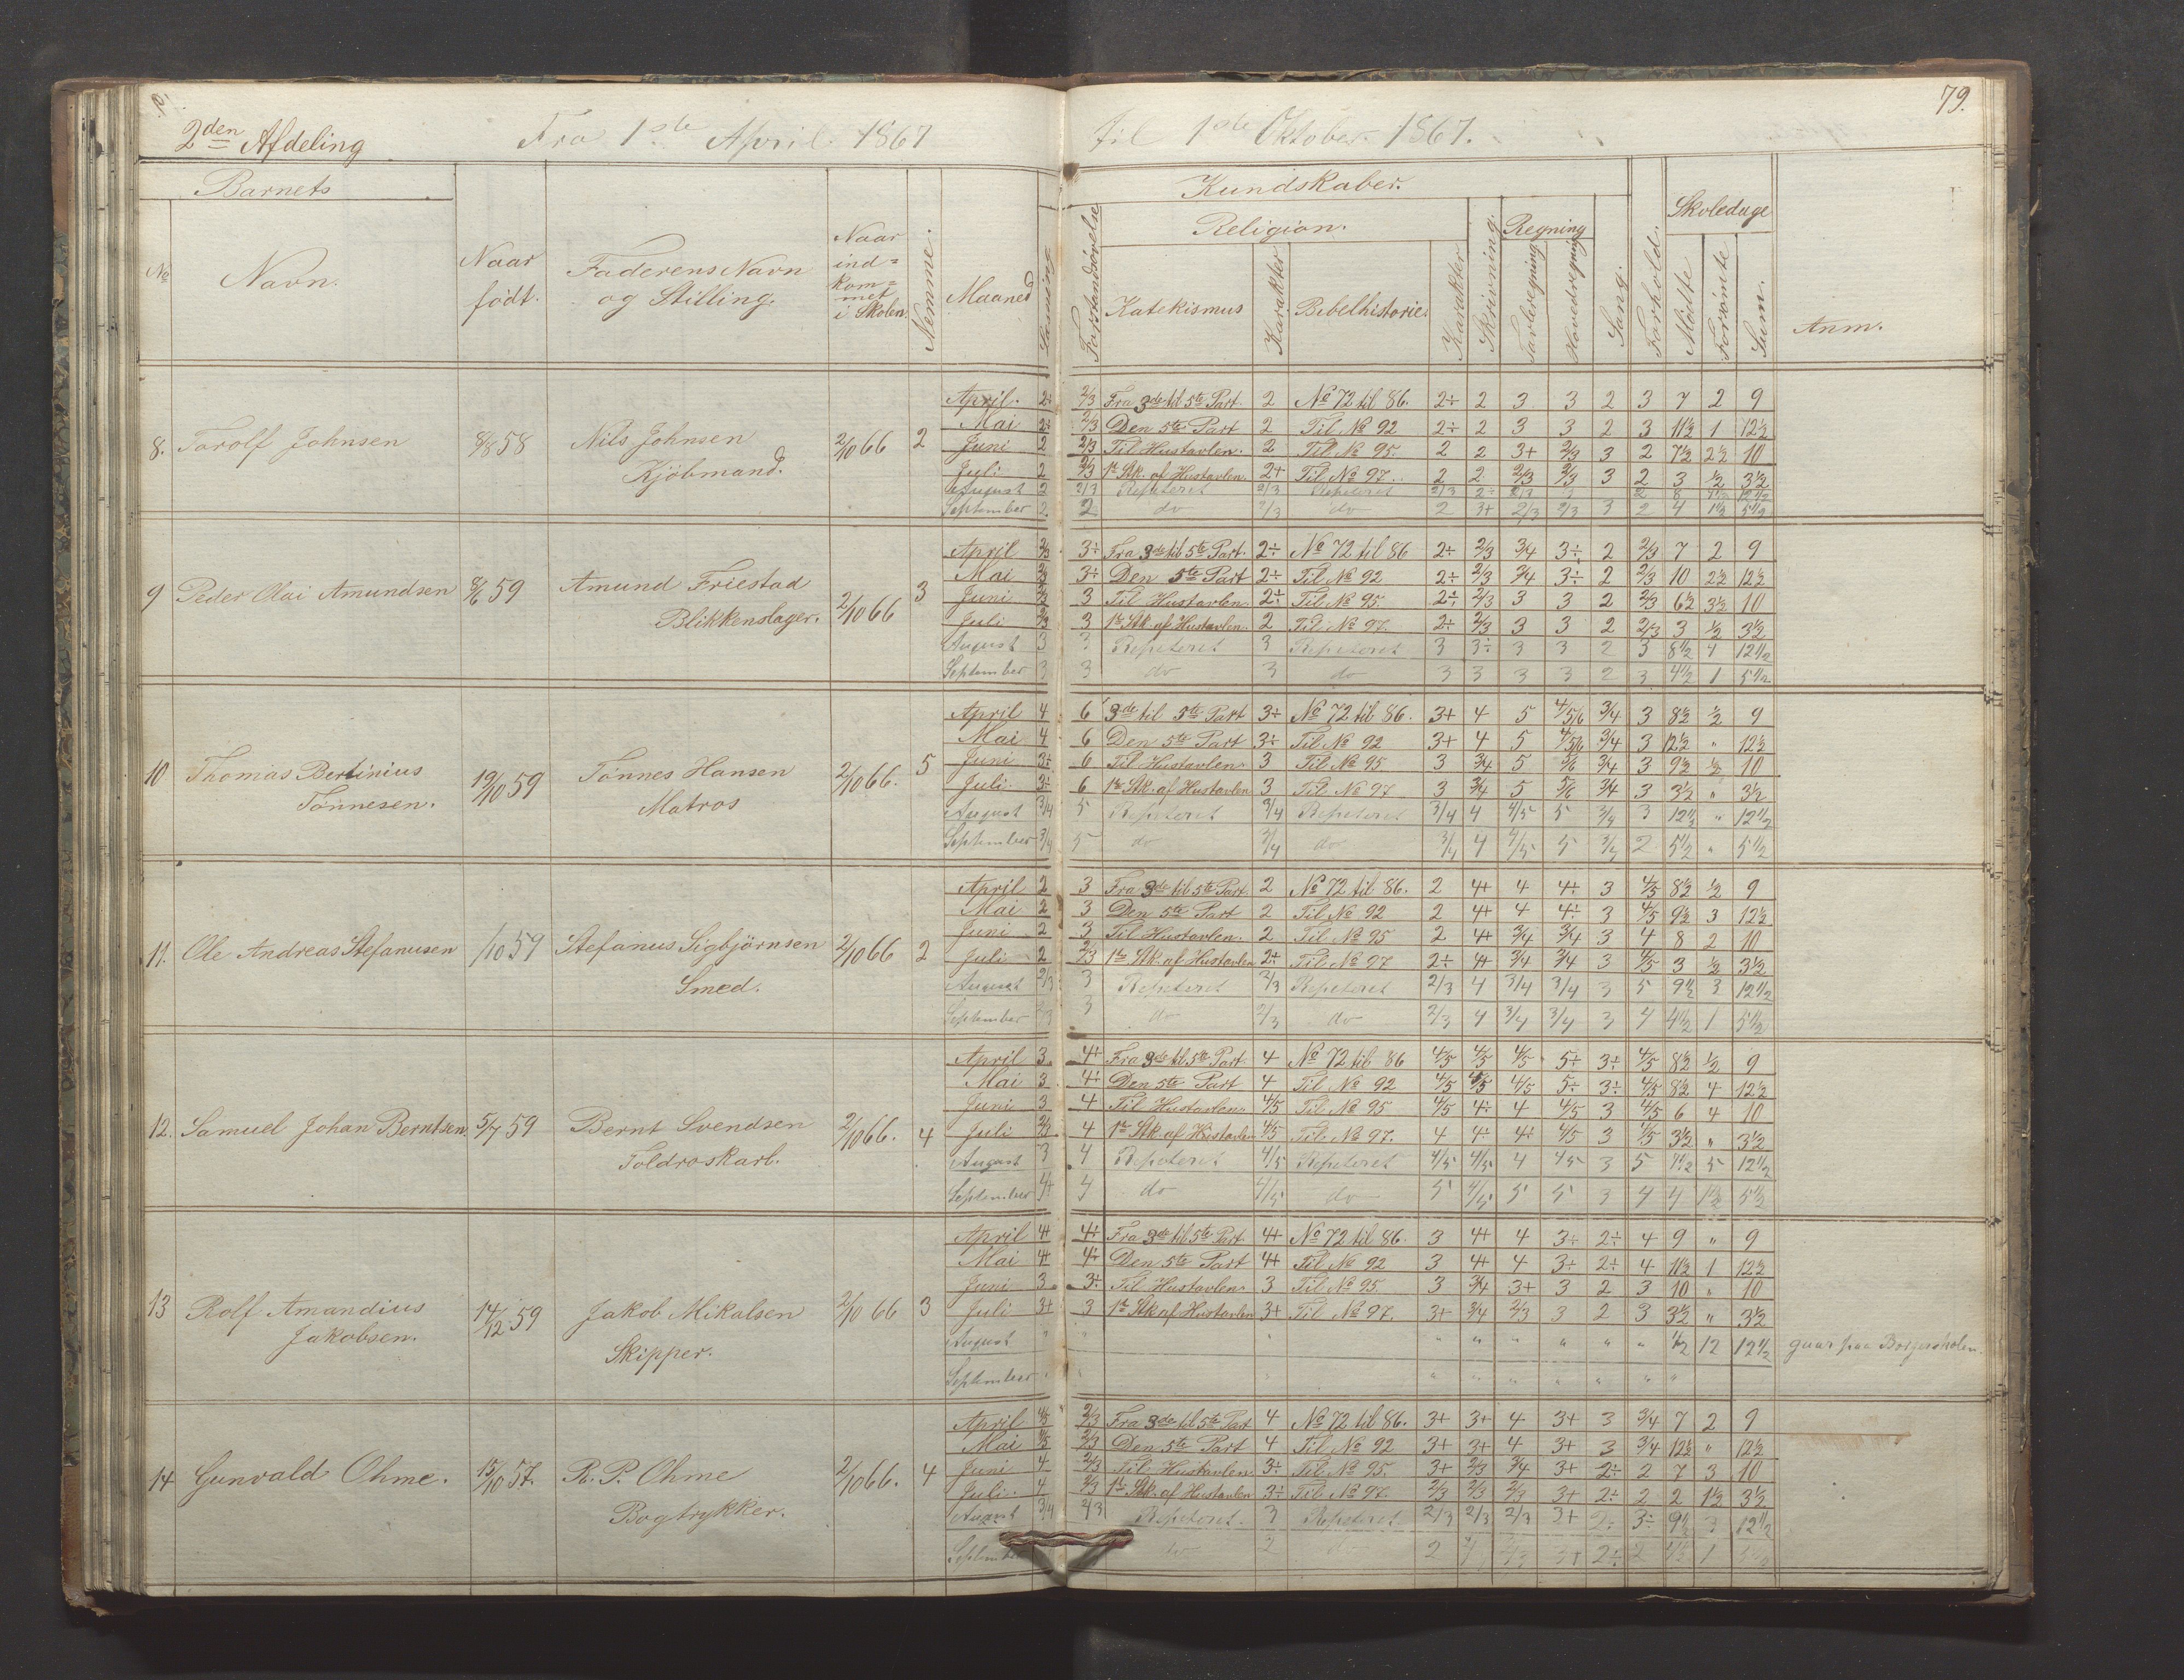 79.
2den Afdeling Fra 1ste April 1867 til 1ste Oktober 1867.
Barnets Kundskaber. Skoledage
No Navn. Naar født. Faderens Navn og Stilling. Naar indkommet i Skolen. Nemme. Maaned Læsning Forstandsøvelse Religion. Katekismus Karakter Bibelhistorie. Karakter Skrivning. Regning Tavleregning Hovedregning Sang. Forhold. Mødte Forsømte Sum. Anm.
April 2÷ 2/3 Fra 3de til 5te Part. 2 No 72 til 86. 2÷ 2 3 3 2 3 7 2 9
Mai 2÷ 2/3 Den 5te Part 2 Til No 92 2÷ 2 3 3 2 3 11½ 1 12½
8. Torolf Johnsen 8/8 58 Nils Johnsen 2/10 66 2 Juni 2 2/3 Til Hustavlen. 2 Til No 95. 2 2 3+ 2/3 3 2 7½ 2½ 10
Kjöbmand. Juli 2 2/3 1ste Stk. af Hustavlen. 2+ Til No 97. 2 2 2/3 2/3 3 2 3 ½ 3½
August 2 2/3 Repeteret 2/3 Repeteret 2/3 2÷ 2/3 2 8 4½ 12½
September 2 2 do 2/3 do 2 3+ 2/3 2/3 3 2 4 1½ 5½
April 2/3 3÷ Fra 3de til 5te Part. 2÷ No 72 til 86 2÷ 2/3 3/4 3÷ 2 2/3 7 2 9
Mai 2/3 3÷ Den 5te Part 2÷ Til No 92 2÷ 2/3 3/4 3÷ 2 2/3 10 2½ 12½
9 Peder Olai Amundsen 8/6 59 Amund Friestad 2/10 66 3 Juni 2/3 3 Til Hustavlen 2÷ Til No 95. 2÷ 2/3 3 3 2 2/3 6½ 3½ 10
Blikkenslager. Juli 2/3 3 1ste Stk af Hustavlen. 2 Til No 97. 2÷ 2/3 3 3 2 2/3 3 ½ 3½
August 3 3 Repeteret 3 Repeteret 3 3÷ 3 3 2 3 8½ 4 12½
September 3 3 do 3 do 3 3 3 3 2 3 4½ 1 5½
April 4 6 3de til 5te Part 3÷ No 72 til 86. 3+ 4 5 5/6 3/4 3 8½ ½ 9
Mai 4 6 Den 5te Part 3÷ Til No 92 3+ 4 5 5/6 3/4 3 12½ " 12½
10 Thomas Bertinius 19/10 59 Tönnes Hansen 2/10 66. 5 Juni 3÷ 6 Til Hustavlen 3 Til No 95 3 3/4 5 5/6 3/4 3 9½ ½ 10
Tönnesen. Matros Juli 3÷ 6 1ste Stk. af Hustavlen 3 Til No 97 3 3/4 5 5/6 3/4 3 3½ " 3½
August 3/4 5 Repeteret 3/4 Repeteret 3/4 4 4/5 5 3/4 3 12½ " 12½
September 3/4 5 do 3/4 do 3/4 4 4/5 5 3/4 2 5½ " 5½
April 2 3 Fra 3de til 5te Part. 2 No 72 til 86. 2 4+ 4 4÷ 3 4/5 8½ ½ 9
Mai 2 3 Den 5te Part 2 Til No 92 2 4+ 4 4÷ 3 4/5 9½ 3 12½
11. Ole Andreas Stefanusen /10 59 Stefanus Sigbjörnsen 2/10 66 2 Juni 2 3 Til Hustavlen. 2 Til No 95 2 4+ 3/4 3/4 3 4 8 2 10
Smed. Juli 2 2/3 1ste Stk. af Hustavlen 2÷ Til No 97 2÷ 4+ 3/4 3/4 3 4/5 3 ½ 3½
August 2/3 3 Repeteret 2/3 Repeteret 2/3 4 3/4 3/4 3 5 9½ 3 12½
September 3 do 2/3 do 2/3 4 3/4 3/4 3 4 4½ 1 5½
April 3 4+ Fra 3de til 5te Part. 4 No 72 til 86 4/5 4/5 4/5 5÷ 3÷ 4/5 8½ ½ 9
Mai 3 4÷ Den 5te Part 4 Til No 92 4/5 4/5 4/5 5÷ 3÷ 4/5 8½ 4 12½
12. Samuel Johan Berntsen. 5/7 59 Bernt Svendsen 2/10 66. 4 Juni 3 4 Til Hustavlen 4/5 Til No 95 4/5 4÷ 4 4/5 3 4/5 6 4 10
Toldroskarl. Juli 2/3 4 1ste Stk. af Hustavlen 4/5 Til No 97. 4 4÷ 4÷ 4/5 3 4/5 3½ " 3½
August 3 4 Repeteret 4/5 Repeteret 4/5 4/5 4 4/5 3 5 7½ 5 12½
September 4 4 do 4/5 do 5 4/5 5 5 3 4 4 1½ 5½
April 4+ 4+ Fra 3de til 5te Part 4+ No 72 til 86. 3 4+ 4 3÷ 2÷ 4 9 " 9
Mai 4+ 4÷ Den 5te Part 4+ Til No 92 3 4+ 4 3÷ 2÷ 4 11½ 1 12½
13 Rolf Amandius 14/12 59 Jakob Mikalsen 2/10 66 3 Juni 3 3÷ Til Hustavlen 3 Til No 95. 3 3/4 3+ 3 2 3 10 " 10
Jakobsen. Skipper. Juli 3+ 3 1ste Stk af Hustavlen 3+ Til No 97. 3+ 3/4 2/3 3 2 3 3½ " 3½
August " " " " " " " " " ½ 12 12½ gaar paa Borgerskolen.
September " " " " " " " "
April 4/5 2/3 Fra 3de til 5te Part 4 No 72 til 86. 3+ 3+ 4 3+ 3 3/4 7 2 9
Mai 4/5 2/3 Den 5te Part 4 Til No 92 3+ 3+ 4 3+ 3 3/4 12½ " 12½
14 Gunvald Ohme. 15/10 57. R. P. Ohme 2/10 66. 4 Juni 4 2/3 Til Hustavlen. 3÷ Til No 95. 3+ 2/3 3/4 3+ 2÷ 2 7 3 10
Bogtrykker. Juli. 4 2/3 1ste Stk. af Hustavlen 3÷ Til No 97. 2/3 2/3 2/3 3+ 2÷ 2 2 1½ 3½
August 3/4 2/3 Repeteret. 3 Repeteret 2/3 2/3 2/3 3+ 2÷ 3÷ 9½ 3 12½
September do 2 do 2 2/3 3+ 2÷ 2 4½ 1 5½